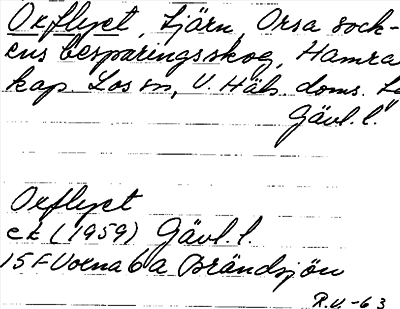 Oxflyet, tjärn, Orsa sock-
ens besparingsskog, Hamra
kap. Los sn, V. Häls. doms.
Gävl. l.
Oxflyet
ek (1959) Gävl. l.
15F Voxna 6a Brändsjön
R.U.-63